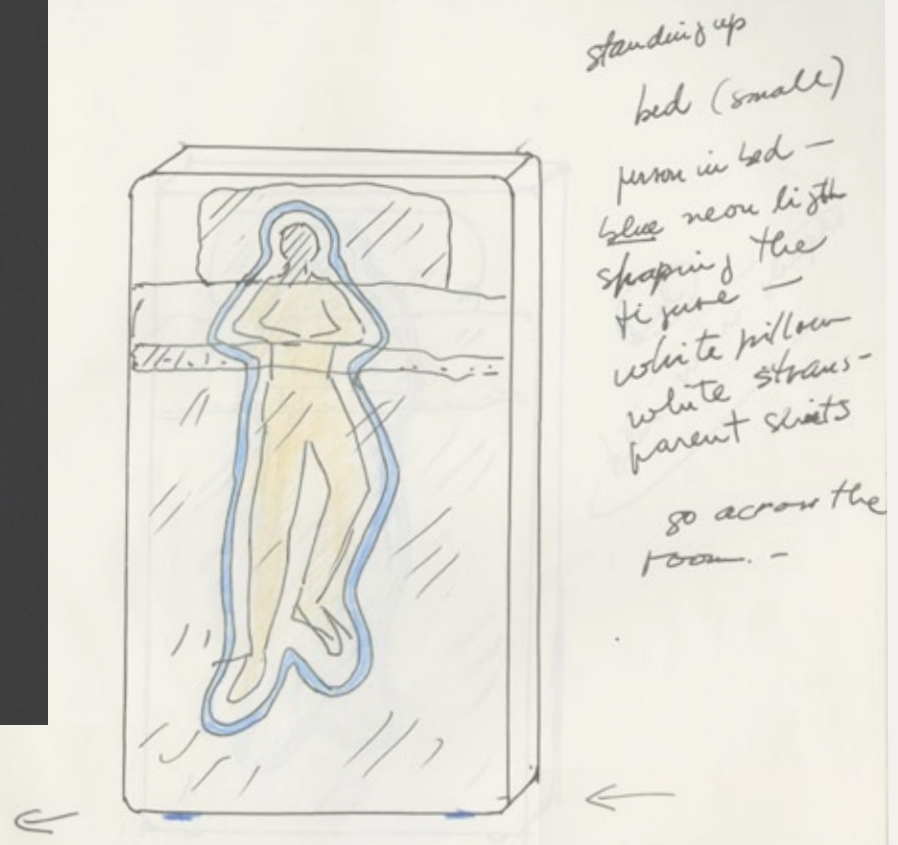 standing up
bed (small)
person in bed —
blue neon ligth
shaping the
figure —
white pillow
white strans-
parent shits
go across the
room. —